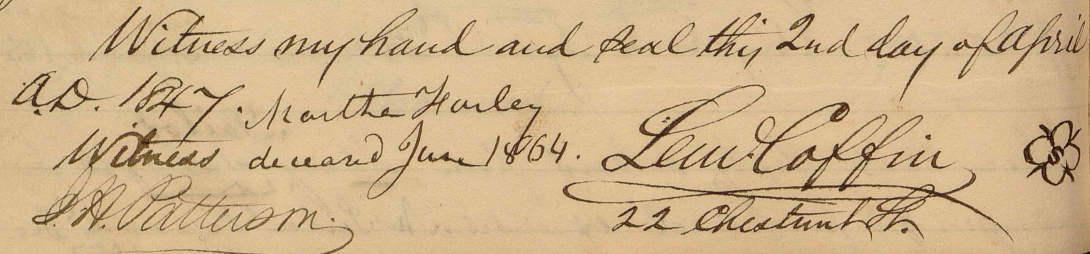 Witness my hand and seal this 2nd day of April
A.D. 1847. Martha Hurley
Witness deceased June 1864. Lemᵈ Coffin
J. H. Patterson.
22 Chestnut St.